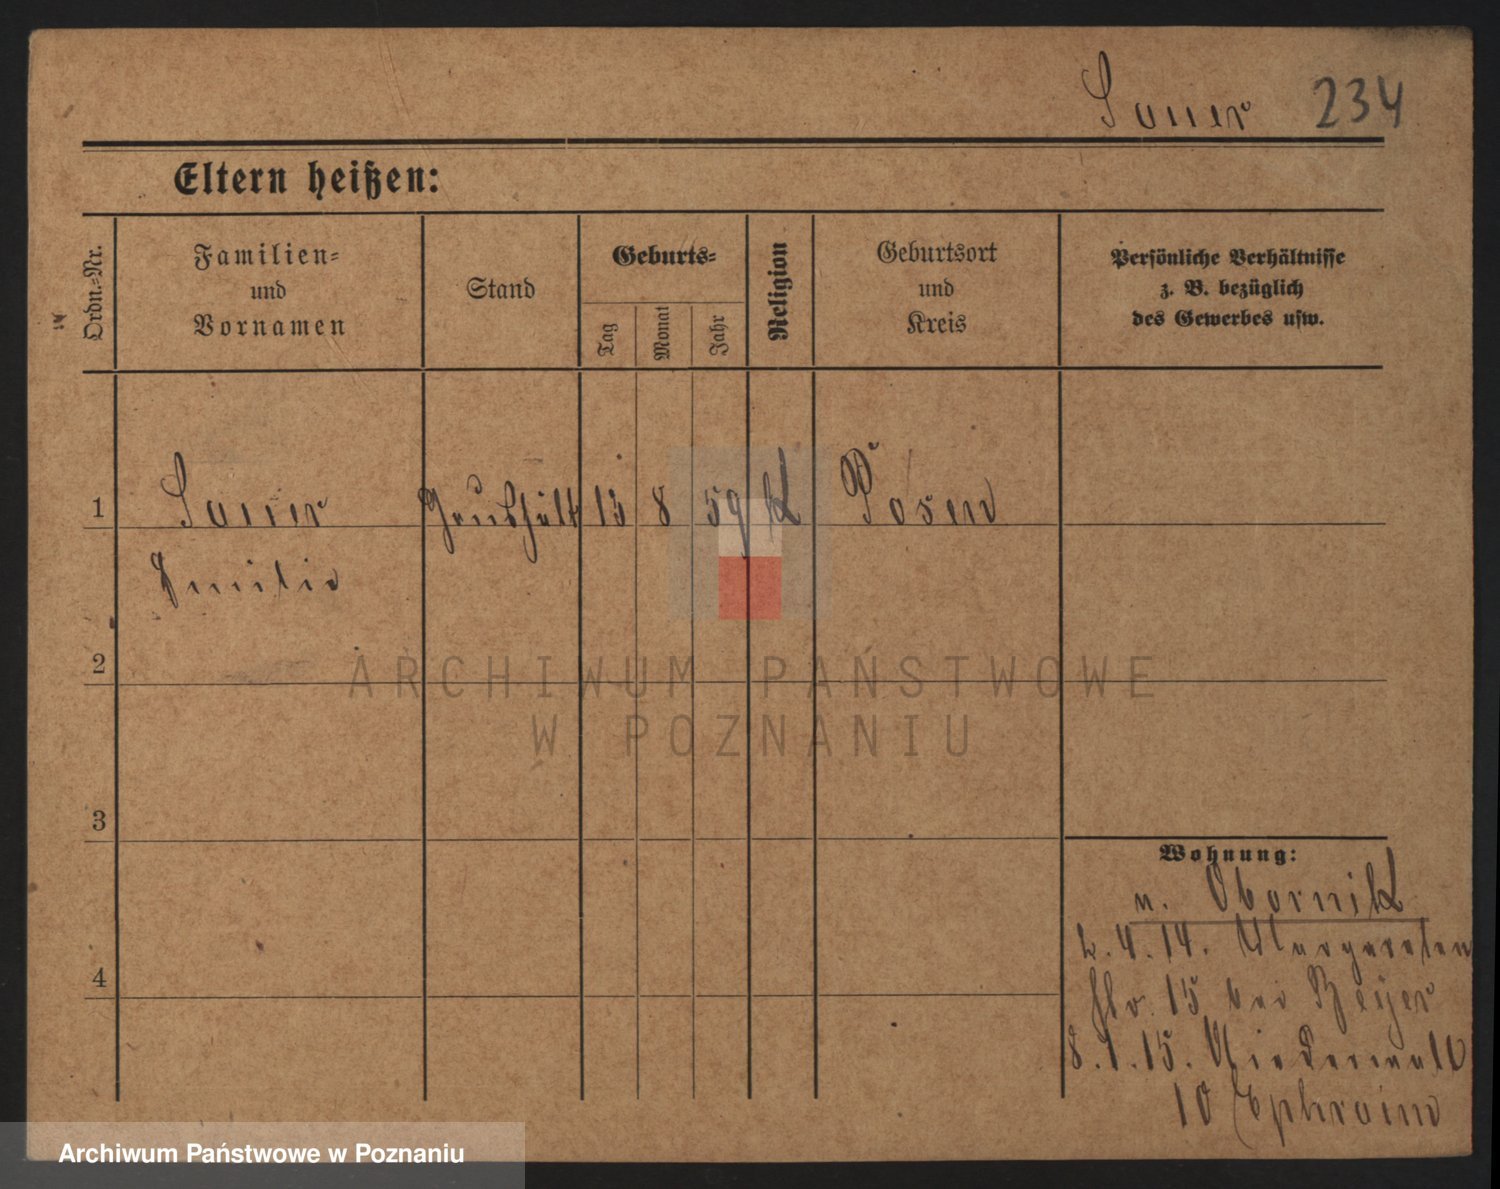 Sauer 234
Eltern heißen:
Ordn.-Nr.
Familien-
und
Vornamen
Stand
Geburts-
Tag
Monat
Jahr
Religion
Geburtsort
und
Kreis
Persönliche Verhältnisse
z. B. bezüglich
des Gewerbes usw.
1 Sauer 13 8 59 K Posen
Emilie
2
3
4
Wohnung:
n. Obornik
2.4.14. Margareten
str. 15 bei Beyer
8.1.15. Niederwall
10 Ephraim
ARCHIWUM PAŃSTWOWE
W POZNANIU
Archiwum Państwowe w Poznaniu